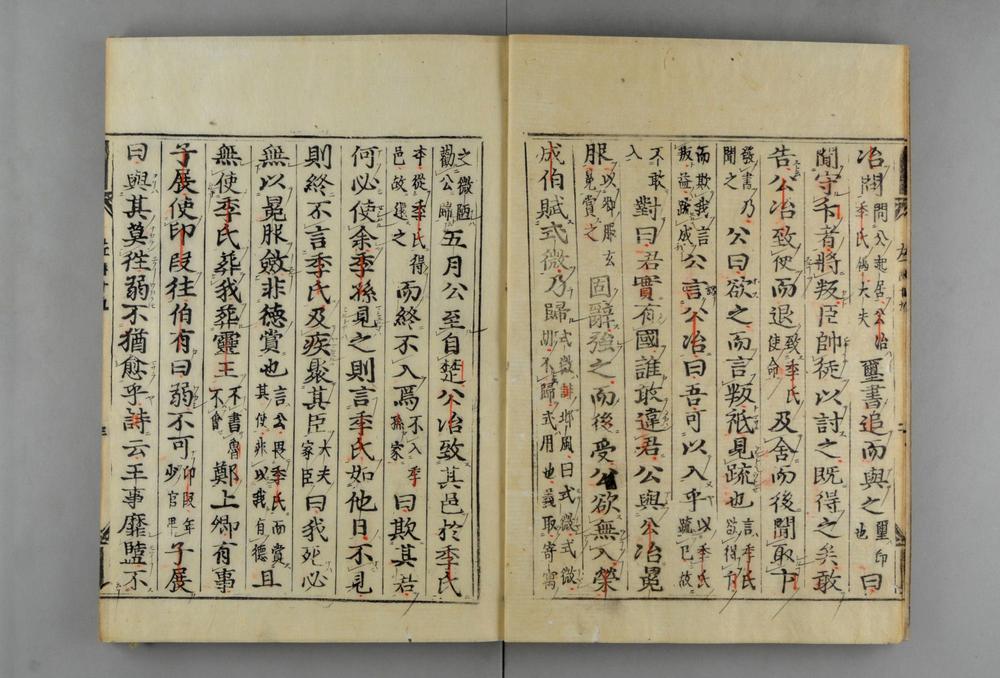 冶問問公起居公冶季氏屬大夫璽書追而與之璽印也曰
聞守卞者將叛臣帥徒以討之既得之矣敢
告公冶致使而退致季氏使命及舍而後聞取卞
發書乃聞之公曰欲之而言叛祇見疏也言季氏欲得卞
而欺我言叛益疏成公言公冶曰吾可以入乎以季氏疏己故
不敢入對曰君實有國誰敢違君公與公冶冕
服以卿服玄冕賞之固辭強之而後受公欲無入榮
成伯賦式微乃歸式微詩邶風曰式微式微胡不歸式用也義取寄寓
文微陋勸公歸五月公至自楚公冶致其邑於季氏
本從季氏得邑故還之而終不入焉不入季孫家曰欺其君
何必使余季孫見之則言季氏如他日不見
則終不言季氏及疾聚其臣大夫家臣曰我死必
無以冕服斂非德賞也言公畏季氏而賞其使非以我有德且
無使季氏葬我葬靈王不書魯不會鄭上卿有事
子展使印段往伯有曰弱不可印段年少官卑子展
曰與其莫往弱不猶愈乎詩云王事靡盬不